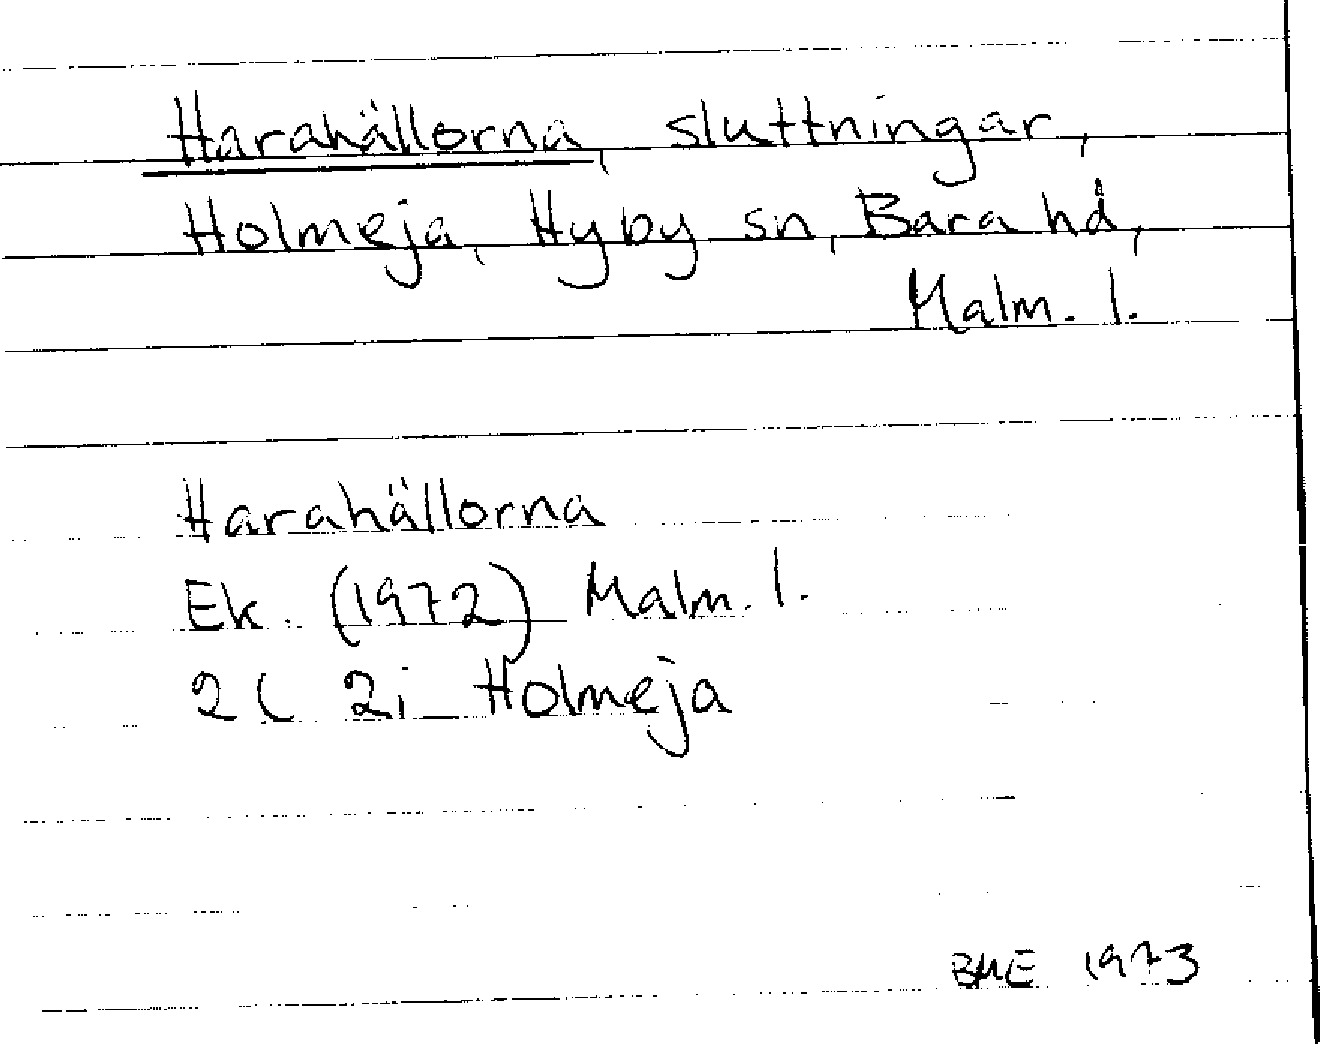 Harahällorna, sluttningar,
Holmeja, Hyby sn, Bara hd,
Malm. l.
Harahällorna
Ek. (1972) Malm. l.
2C 2i Holmeja
BME 1973